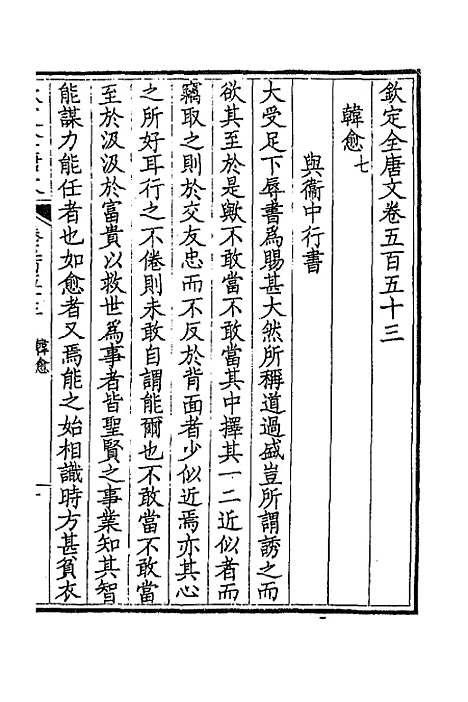 欽定全唐文卷五百五十三
韓愈七
與衞中行書
大受足下辱書爲賜甚大然所稱道過盛豈所謂誘之而
欲其至於是歟不敢當不敢當其中擇其一二近似者而
竊取之則於交友忠而不反於背面者少似近焉亦其心
之所好耳行之不倦則未敢自謂能爾也不敢當不敢當
至於汲汲於富貴以救世爲事者皆聖賢之事業知其智
能謀力能任者也如愈者又焉能之始相識時方甚貧衣
韓愈
一